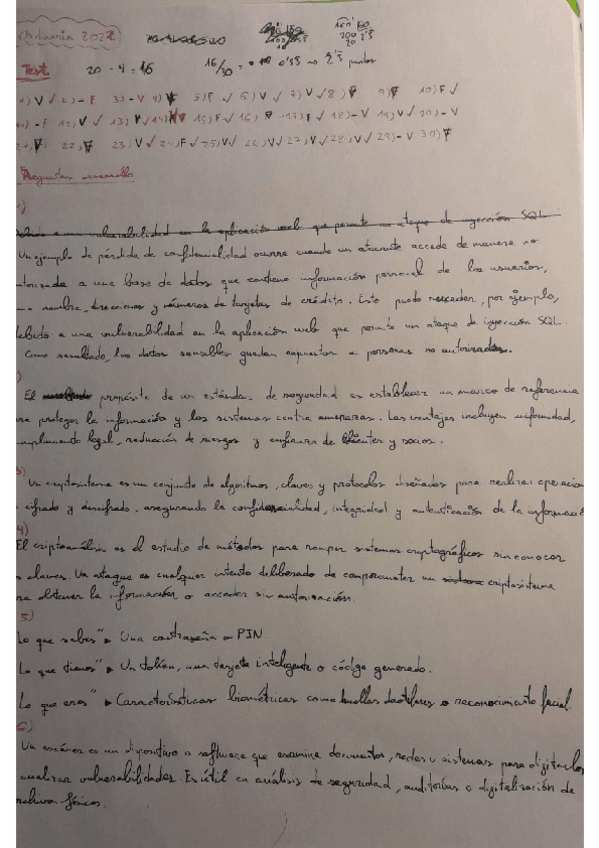 Ordinaria 2022
160
200 2'3
20
Test 20 - 4 = 16 16/30 = 0'53 no 2'3 puntos
1) V ✓ 2) - F 3) - V 4) F 5) F ✓ 6) V ✓ 7) V ✓ 8) 9) 10) F ✓
11) - F 12) V ✓ 13) V ✓ 14) 15) F ✓ 16) F 17) F ✓ 18) - V 19) V ✓ 20) - V
21) 22) F 23) V ✓ 24) F ✓ 25) V ✓ 26) V ✓ 27) V ✓ 28) V ✓ 29) - V 30) F
Preguntas desarrollo
1)
Debido a una vulnerabilidad en la aplicación web que permite un ataque de inyección SQL.
Un ejemplo de pérdida de confidencialidad ocurre cuando un atacante accede de manera no
torizada a una base de datos que contiene información personal de los usuarios,
mo nombre, direcciones y números de tarjetas de crédito. Esto puede suceder, por ejemplo,
debido a una vulnerabilidad en la aplicación web que permite un ataque de inyección SQL.
Como resultado, los datos sensibles quedan expuestos a personas no autorizadas.
)
El propósito de un estándar de seguridad es establecer un marco de referencia
ra proteger la información y los sistemas contra amenazas. Las ventajas incluyen uniformidad,
mplimiento legal, reducción de riesgos y confianza de clientes y socios.
3)
Un criptosistema es un conjunto de algoritmos, claves y protocolos diseñados para realizar operacion
cifrado y descifrado, asegurando la confidencialidad, integridad y autenticación de la informaci
4)
El criptoanálisis es el estudio de métodos para romper sistemas criptográficos sin conocer
s claves. Un ataque es cualquier intento deliberado de comprometer un sistema criptosistema
ra obtener la información o acceder sin autorización.
5)
Lo que sabes" ► Una contraseña o PIN.
Lo que tienes" ► Un token, una tarjeta inteligente o código generado.
Lo que eres" ► Características biométricas como huellas dactilares o reconocimiento facial.
6)
Un escáner es un dispositivo o software que examina documentos, redes o sistemas para digitalizarlos
analizar vulnerabilidades. Es útil en análisis de seguridad, auditorías o digitalización de
rchivos físicos.